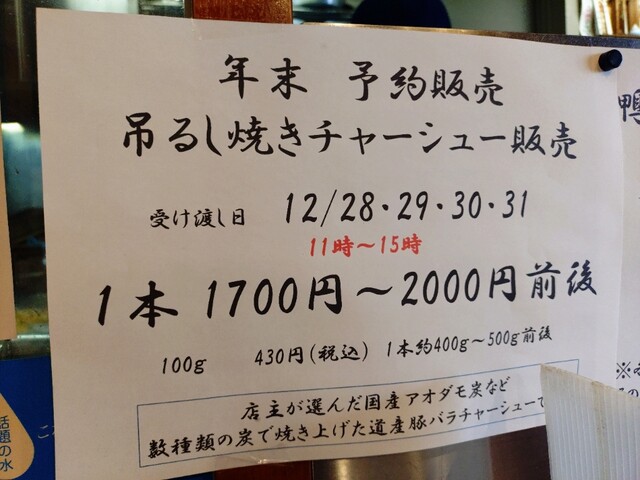 年末 予約販売
吊るし焼きチャーシュー販売
受け渡し日 12/28・29・30・31
11時～15時
1本 1700円～2000円前後
100g 430円(税込) 1本約400g～500g前後
店主が選んだ国産アオダモ炭など
数種類の炭で焼き上げた道産豚バラチャーシューで
鴨
※
話題の水